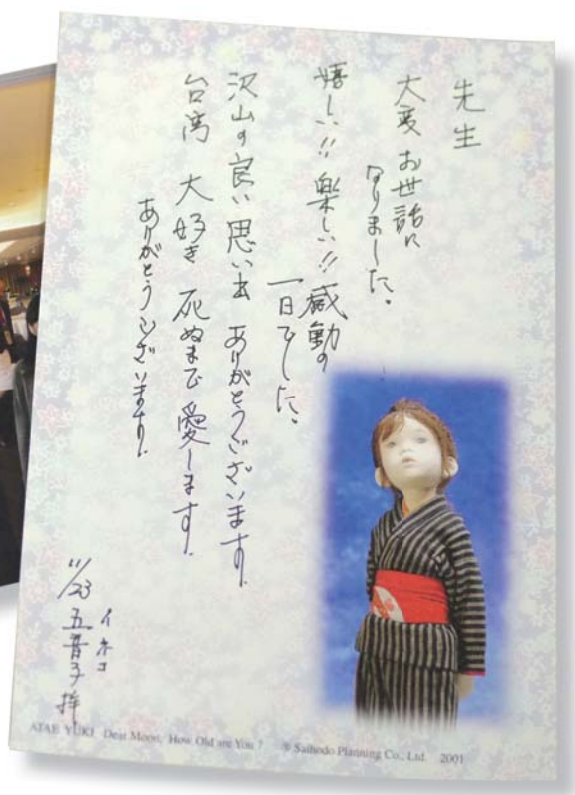 先生
大変お世話に
なりました。
嬉しい!! 楽しい!! 感動の
一日でした。
沢山の良い思い出 ありがとうございます。
台湾 大好き 死ぬまで 愛します。
ありがとうございます。
11/23 五音子 拝
イネコ
ATAE YUKI Dear Moon, How Old are You ? © Saihodo Planning Co., Ltd. 2001